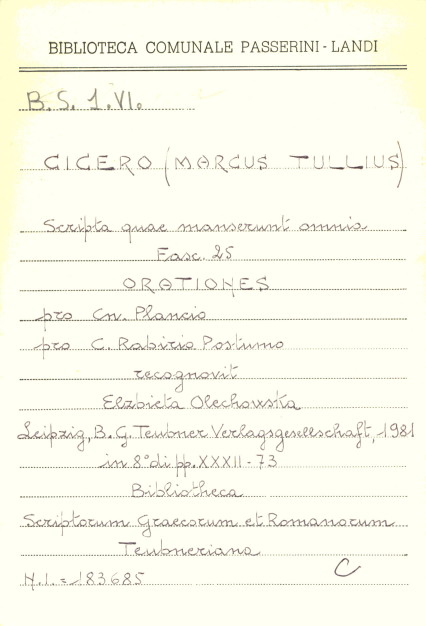 BIBLIOTECA COMUNALE PASSERINI - LANDI
B. S. 1. VI.
CICERO (MARCUS TULLIUS)
Scripta quae manserunt omnia
Fasc. 25
ORATIONES
pro Cn. Plancio
pro C. Rabirio Postumo
recognovit
Elzbieta Olechowska
Leipzig, B. G. Teubner Verlagsgesellschaft, 1981
in 8° di pp. XXXII - 73
Bibliotheca
Scriptorum Graecorum et Romanorum
Teubneriana
N.I. = 183685
C